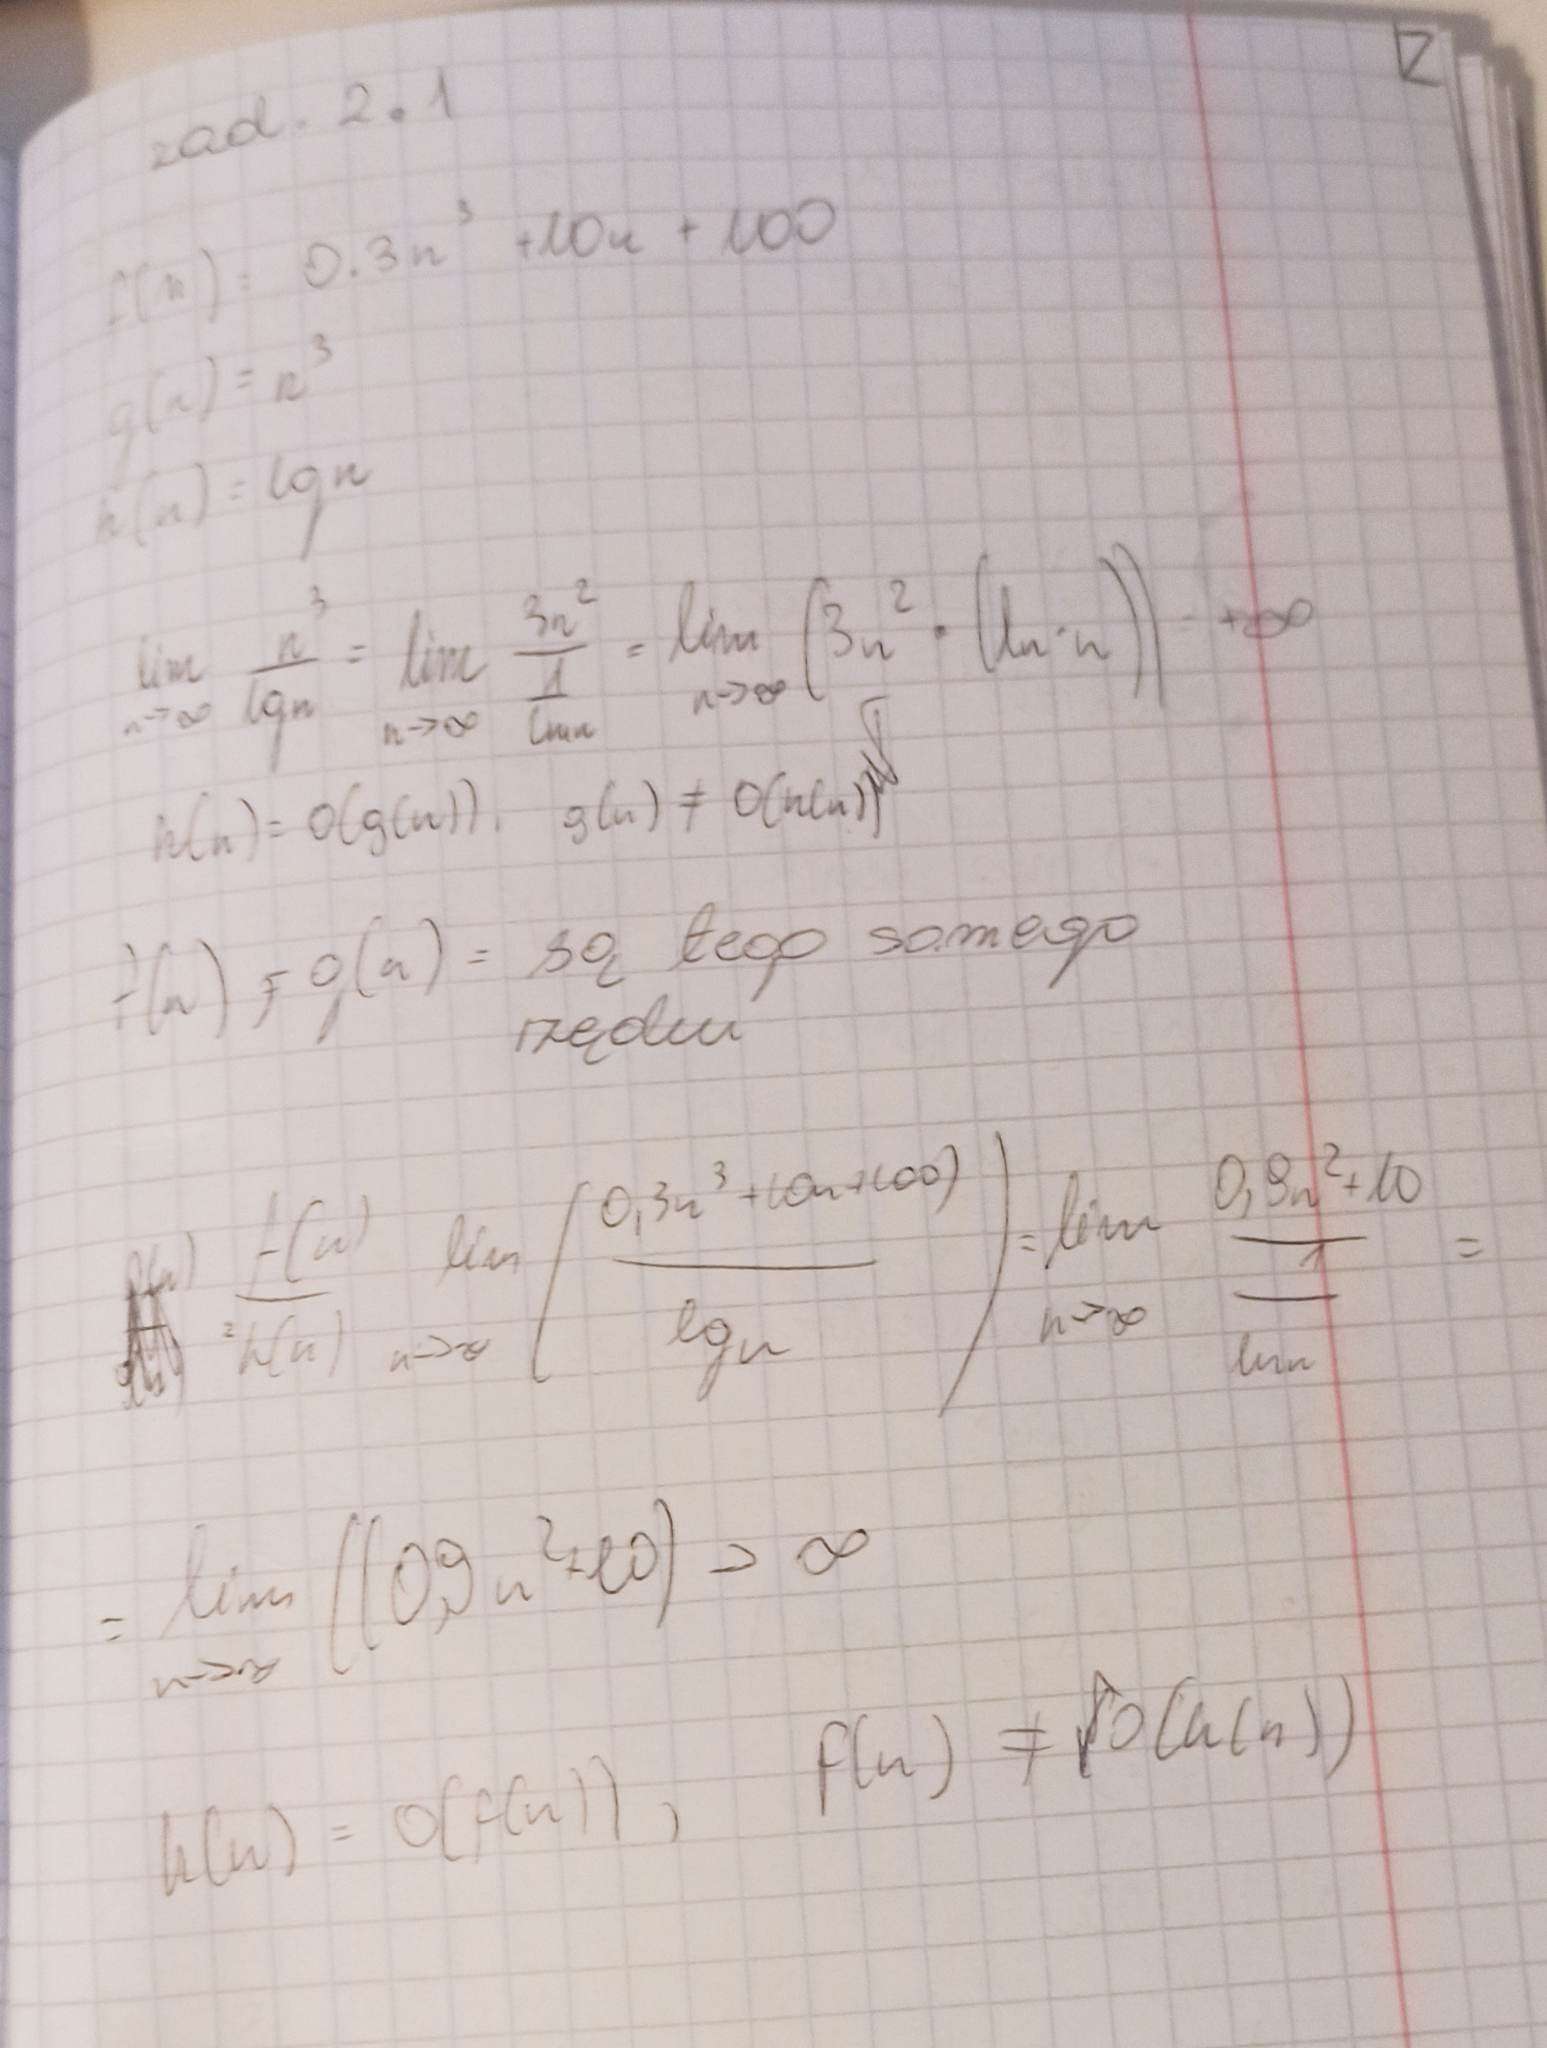 zad. 2.1
f(n) = 0.3n³ + 10n + 100
g(n) = n³
h(n) = lgn
lim n→∞ n³/lgn = lim n→∞ 3n²/(1/lnn) = lim n→∞ (3n² · (ln·n)) = +∞
h(n) = O(g(n)), g(n) ≠ O(h(n))
f(n), g(n) = są tego samego
rzędu
f(n)/h(n) lim n→∞ (0,3n³+10n+100)/lgn) = lim n→∞ (0,9n²+10)/(1/lnn) =
= lim n→∞ ((0,9n²+10) → ∞
h(n) = O(f(n)), f(n) ≠ O(h(n))